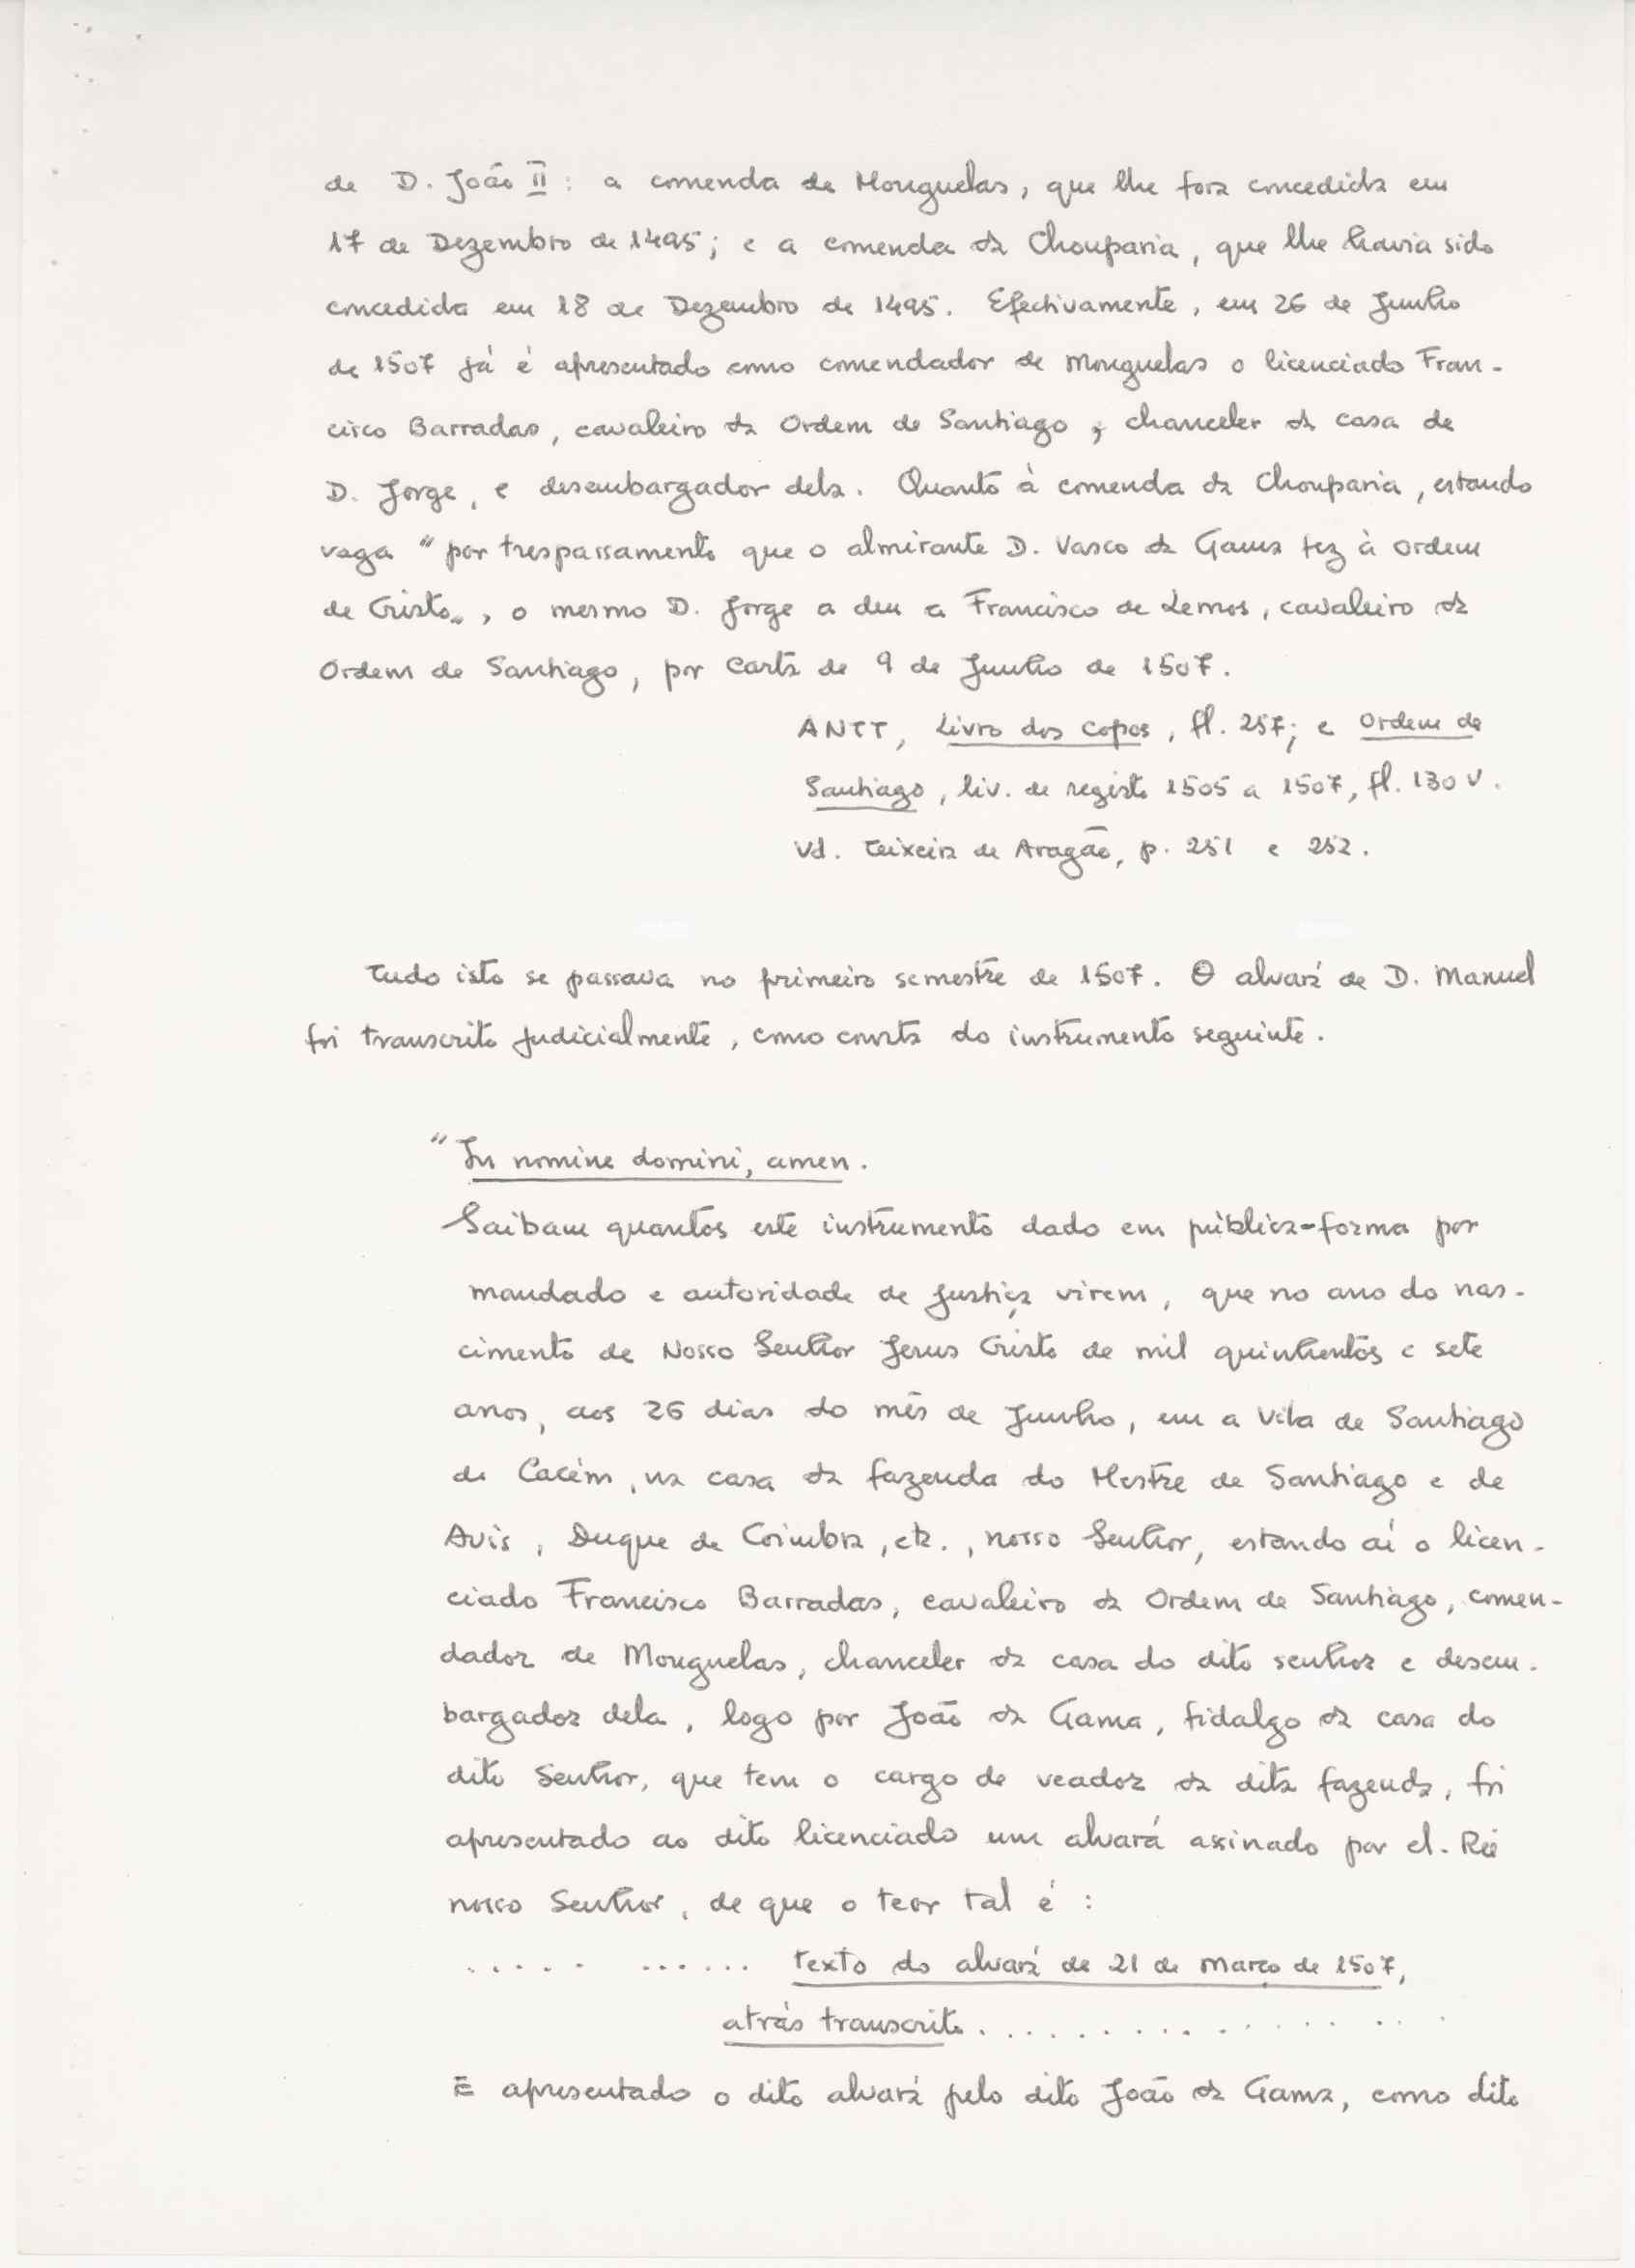 de D. João II: a comenda de Mouguelas, que lhe fora concedida em
17 de Dezembro de 1495; e a comenda da Chouparia, que lhe havia sido
concedida em 18 de Dezembro de 1495. Efectivamente, em 26 de Junho
de 1507 já é apresentado como comendador de Mouguelas o licenciado Fran-
cisco Barradas, cavaleiro da Ordem de Santiago, chanceler da casa de
D. Jorge, e desembargador dela. Quanto à comenda da Chouparia, estando
vaga "por trespassamento que o almirante D. Vasco da Gama fez à ordem
de Cristo", o mesmo D. Jorge a deu a Francisco de Lemos, cavaleiro da
Ordem de Santiago, por carta de 9 de Junho de 1507.
ANTT, Livro dos Copos, fl. 257; e Ordem de
Santiago, liv. de registo 1505 a 1507, fl. 130 v.
Vd. Teixeira de Aragão, p. 251 e 252.
Tudo isto se passava no primeiro semestre de 1507. O alvará de D. Manuel
foi transcrito judicialmente, como consta do instrumento seguinte.
"In nomine domini, amen.
Saibam quantos este instrumento dado em pública-forma por
mandado e autoridade de justiça virem, que no ano do nas-
cimento de Nosso Senhor Jesus Cristo de mil quinhentos e sete
anos, aos 26 dias do mês de Junho, em a Vila de Santiago
de Cacém, na casa da fazenda do Mestre de Santiago e de
Avis, Duque de Coimbra, etc., nosso Senhor, estando aí o licen-
ciado Francisco Barradas, cavaleiro da Ordem de Santiago, comen-
dador de Mouguelas, chanceler da casa do dito senhor e desem-
bargador dela, logo por João da Gama, fidalgo da casa do
dito Senhor, que tem o cargo de veador da dita fazenda, foi
apresentado ao dito licenciado um alvará assinado por el-Rei
nosso Senhor, de que o teor tal é:
..... ...... texto do alvará de 21 de Março de 1507,
atrás transcrito. . . . . . . . . . . . . . .
E apresentado o dito alvará pelo dito João da Gama, como dito